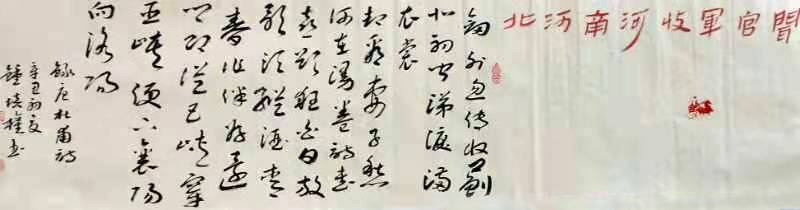 聞官軍收河南河北
劍外忽傳收薊
北初聞涕淚滿
衣裳
却看妻子愁
何在漫卷詩書
喜欲狂白日放
歌須縱酒青
春作伴好還
鄉即從巴峽穿
巫峽便下襄陽
向洛陽
錄唐杜甫詩
辛丑初夏